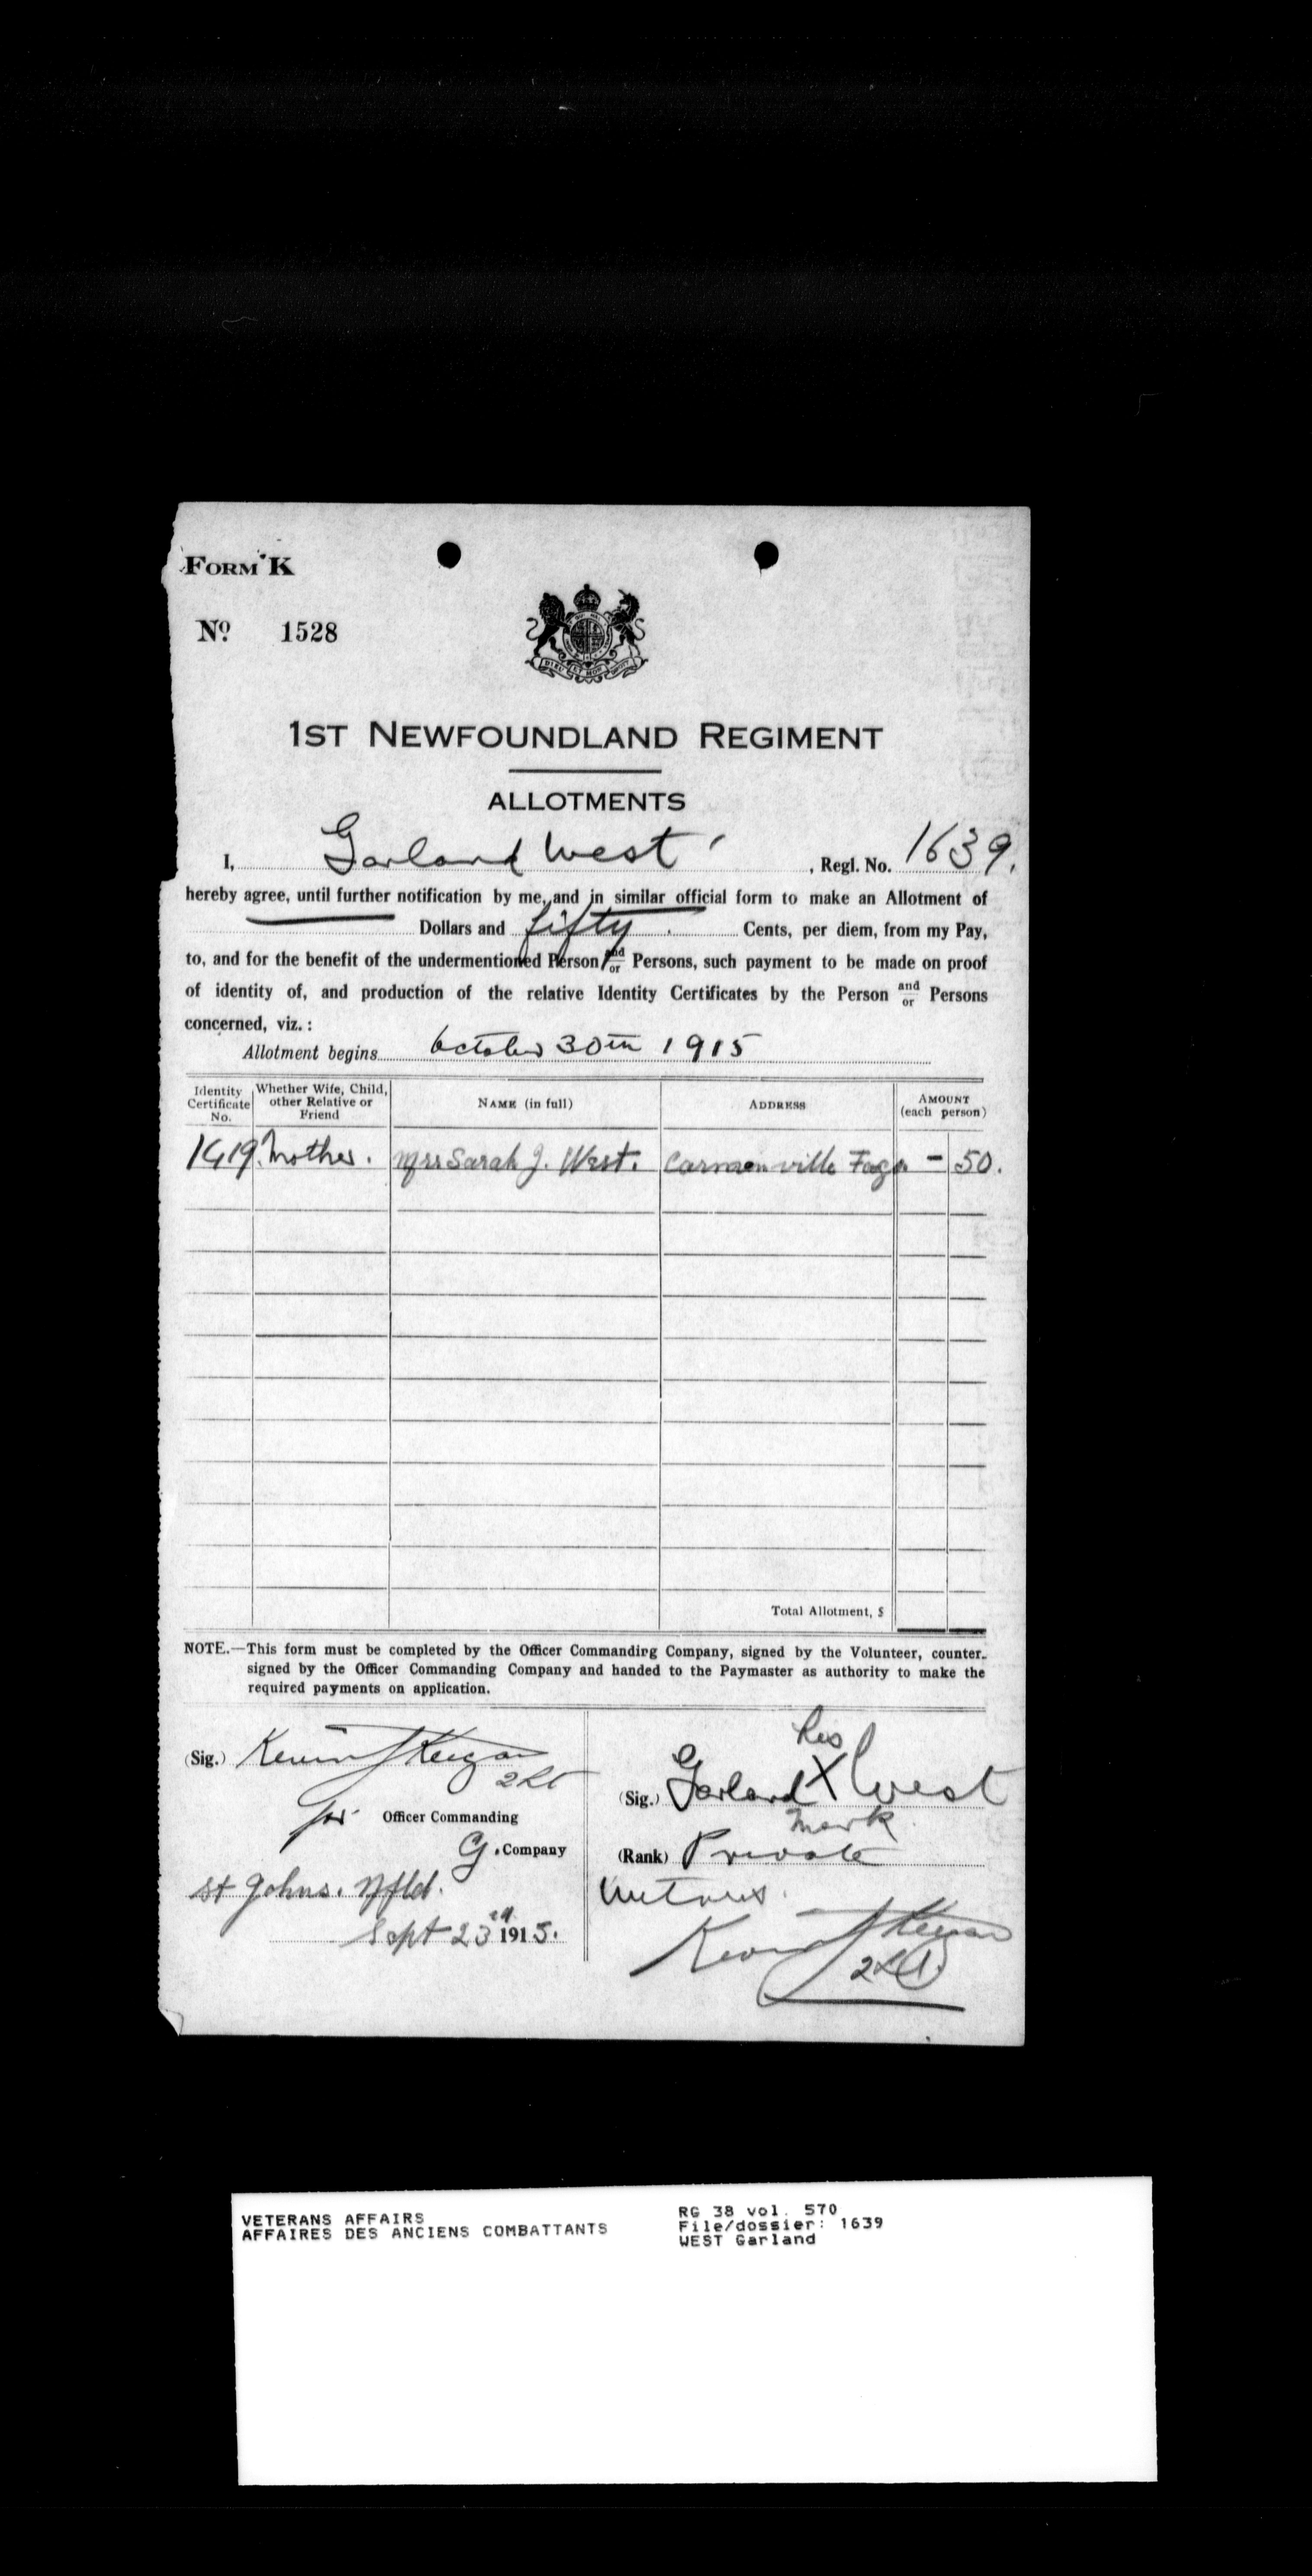 FORM K
No. 1528
DIEU ET MON DROIT
1ST NEWFOUNDLAND REGIMENT
ALLOTMENTS
I, Garland West, Regl. No. 1639.
hereby agree, until further notification by me, and in similar official form to make an Allotment of
Dollars and fifty Cents, per diem, from my Pay,
to, and for the benefit of the undermentioned Person and/or Persons, such payment to be made on proof
of identity of, and production of the relative Identity Certificates by the Person and/or Persons
concerned, viz.:
Allotment begins October 30th 1915
Identity Certificate No. Whether Wife, Child, other Relative or Friend NAME (in full) ADDRESS AMOUNT (each person)
1419. Mother. Mrs Sarah J. West. Carmanville Fogo - 50.
Total Allotment, $
NOTE.—This form must be completed by the Officer Commanding Company, signed by the Volunteer, counter-
signed by the Officer Commanding Company and handed to the Paymaster as authority to make the
required payments on application.
(Sig.) Kevin J Keegan
2 Lt
for Officer Commanding
G. Company
St Johns. Nfld.
Sept 23rd 1915.
his
(Sig.) Garland X West
mark
(Rank) Private
Witness.
Kevin J Keegan
2 Lt
VETERANS AFFAIRS
AFFAIRES DES ANCIENS COMBATTANTS
RG 38 vol. 570
File/dossier: 1639
WEST Garland